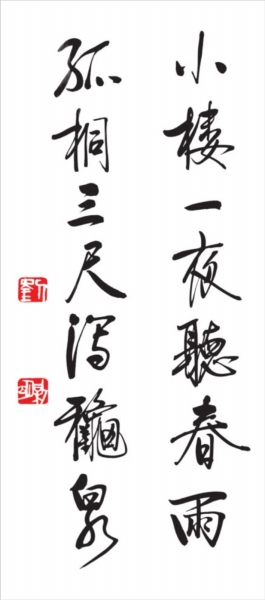 小樓一夜聽春雨
孤桐三尺瀉龝泉
劉